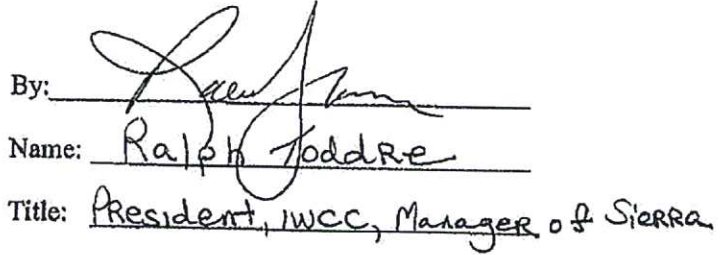 By:
Name: Ralph Toddre
Title: President, IWCC, Manager of Sierra